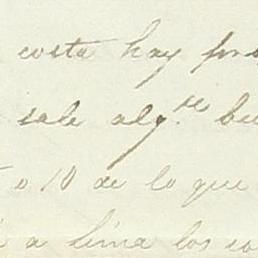 costa hay
sale alg.se
o 10 de lo que
a Lima los